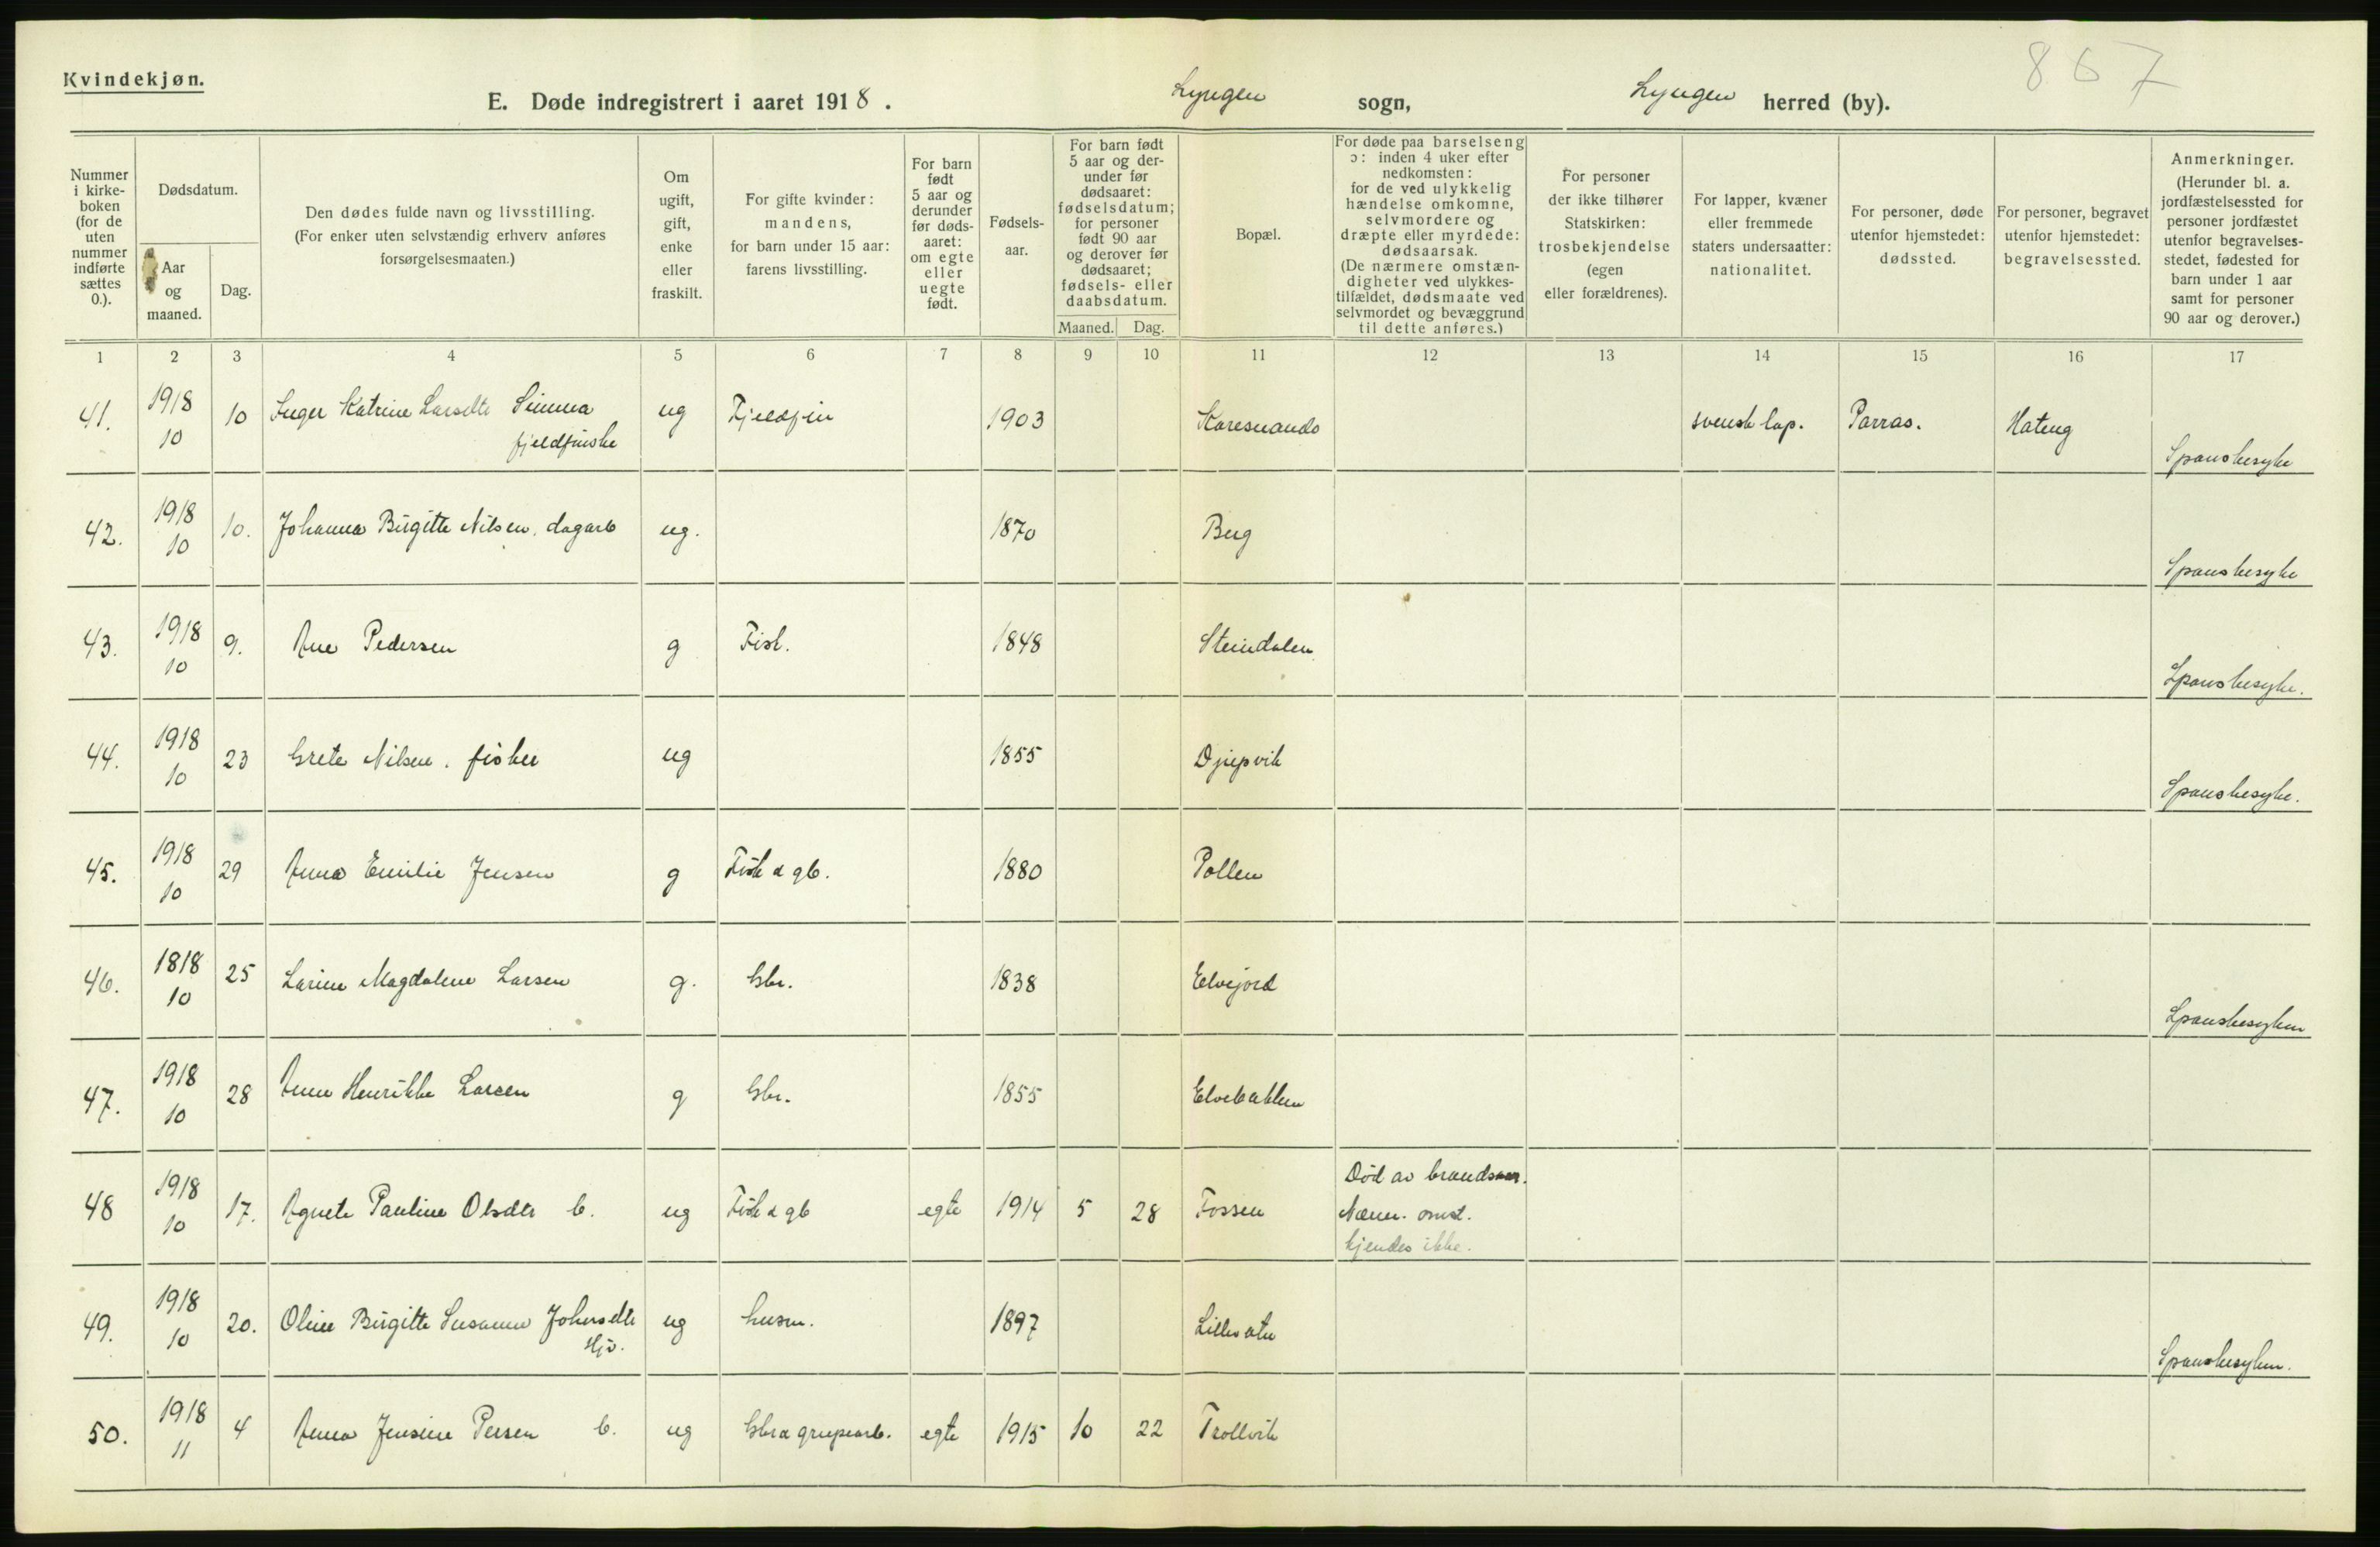 Kvindekjøn.
867
E. Døde indregistrert i aaret 1918. Lyngen sogn, Lyngen herred (by).
Nummer i kirke-boken (for de uten nummer indførte sættes 0.).
Dødsdatum.
Aar og maaned.
Dag.
Den dødes fulde navn og livsstilling.
(For enker uten selvstændig erhverv anføres
forsørgelsesmaaten.)
Om ugift, gift, enke eller fraskilt.
For gifte kvinder:
mandens,
for barn under 15 aar:
farens livsstilling.
For barn født 5 aar og derunder før døds-aaret: om egte eller uegte født.
Fødsels-aar.
For barn født 5 aar og der-under før dødsaaret: fødselsdatum; for personer født 90 aar og derover før dødsaaret; fødsels- eller daabsdatum.
Maaned. Dag.
Bopæl.
For døde paa barselseng
ɔ: inden 4 uker efter
nedkomsten:
for de ved ulykkelig
hændelse omkomne,
selvmordere og
dræpte eller myrdede:
dødsaarsak.
(De nærmere omstæn-
digheter ved ulykkes-
tilfældet, dødsmaate ved
selvmordet og bevæggrund
til dette anføres.)
For personer
der ikke tilhører
Statskirken:
trosbekjendelse
(egen
eller forældrenes).
For lapper, kvæner
eller fremmede
staters undersaatter:
nationalitet.
For personer, døde
utenfor hjemstedet:
dødssted.
For personer, begravet
utenfor hjemstedet:
begravelsessted.
Anmerkninger.
(Herunder bl. a.
jordfæstelsessted for
personer jordfæstet
utenfor begravelses-
stedet, fødested for
barn under 1 aar
samt for personer
90 aar og derover.)
1 2 3 4 5 6 7 8 9 10 11 12 13 14 15 16 17
41. 1918 10 10 Inger Katrine Larsdtr Simma fjeldfinske ug Fjeldfin 1903 Karesuando svensk lap. Parras. Hateng Spanskesyke
42. 1918 10 10. Johanna Birgitte Nilsen, dagarb ug. 1870 Berg Spanskesyke
43. 1918 10 9. Ane Pedersen g Fisk. 1848 Steindalen Spanskesyke.
44. 1918 10 23 Grete Nilsen. fisker ug 1855 Djupvik Spanskesyke.
45. 1918 10 29 Anna Emilie Jensen g Fisk & gb. 1880 Pollen
46. 1818 10 25 Larine Magdalene Larsen g. Gbr. 1838 Elvejord Spanskesyken
47. 1918 10 28 Anne Henrikke Larsen g Gbr. 1855 Elvebakken
48 1918 10 17. Agnete Pauline Olsdtr b. ug Fisk & gb egte 1914 5 28 Fossen Død av brandsaar. Nærm. omst. kjendes ikke.
49. 1918 10 20. Oline Birgitte Susanne Johnsdtr Hj. ug husm. 1897 Spanskesyken.
50. 1918 11 4 Anna Jensine Persen b. ug Gbr & grupearb. egte 1915 10 22 Trollvik